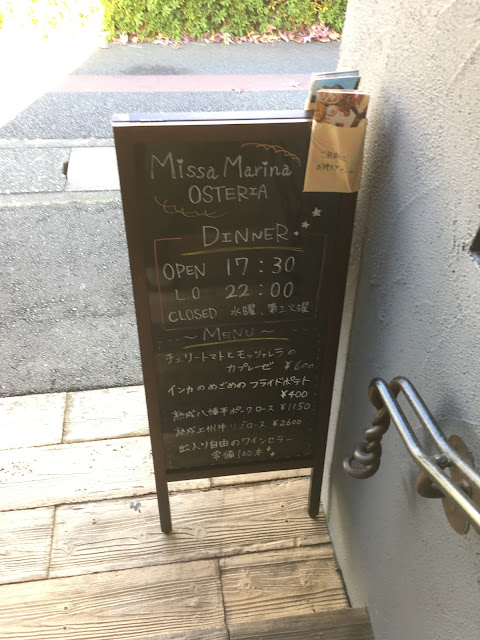 Missa Marina
OSTERIA
DINNER
OPEN 17:30
L.O 22:00
CLOSED 水曜、第三火曜
~ MENU ~
チェリートマトとモッツァレラの
カプレーゼ ¥600
インカのめざめのフライドポテト
¥400
熟成八幡平ポークロース ¥1150
熟成上州牛リブロース ¥2600
出入り自由のワインセラー
常備120本
ご自由に